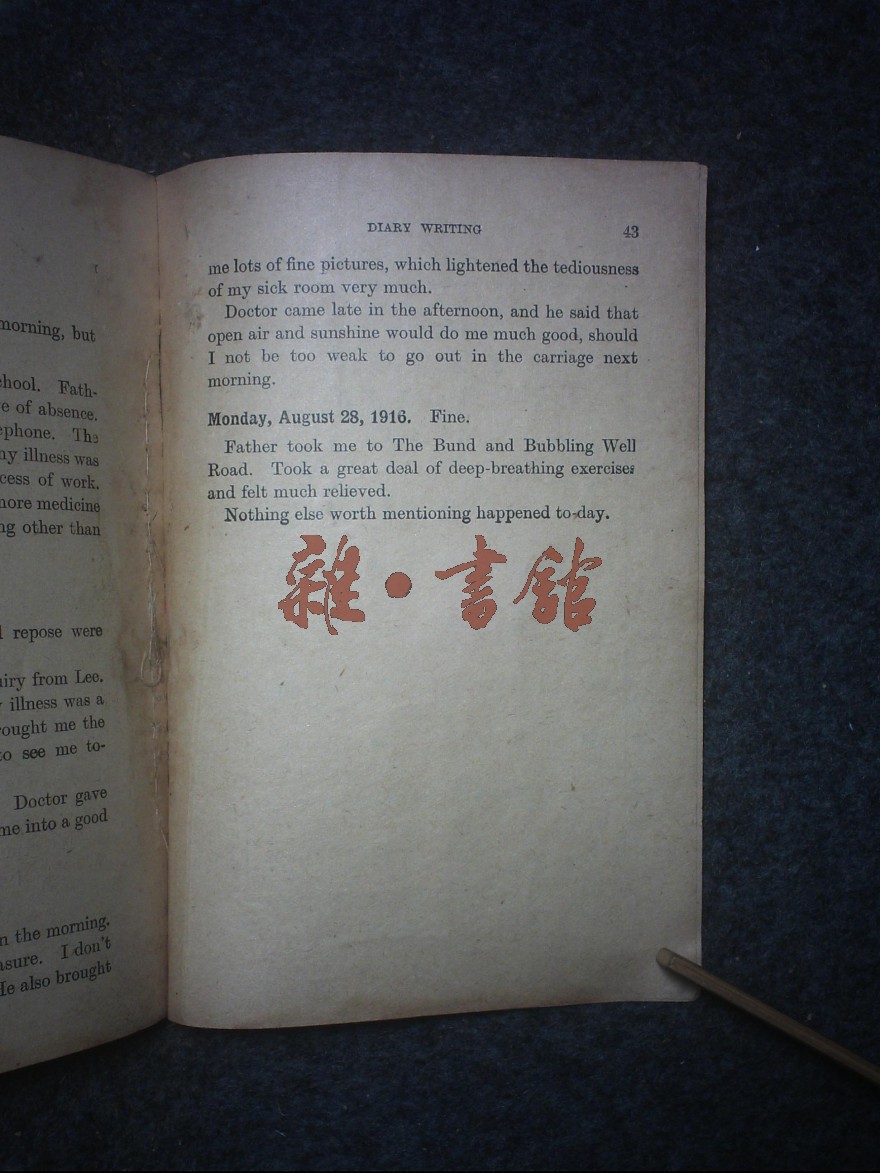 morning, but
chool. Fath-
e of absence.
ephone. The
ny illness was
cess of work.
nore medicine
ng other than
l repose were
iiry from Lee.
illness was a
rought me the
to see me to-
Doctor gave
me into a good
n the morning.
asure. I don't
He also brought
DIARY WRITING 43
me lots of fine pictures, which lightened the tediousness
of my sick room very much.
Doctor came late in the afternoon, and he said that
open air and sunshine would do me much good, should
I not be too weak to go out in the carriage next
morning.
Monday, August 28, 1916. Fine.
Father took me to The Bund and Bubbling Well
Road. Took a great deal of deep-breathing exercises
and felt much relieved.
Nothing else worth mentioning happened to-day.
雜·書館